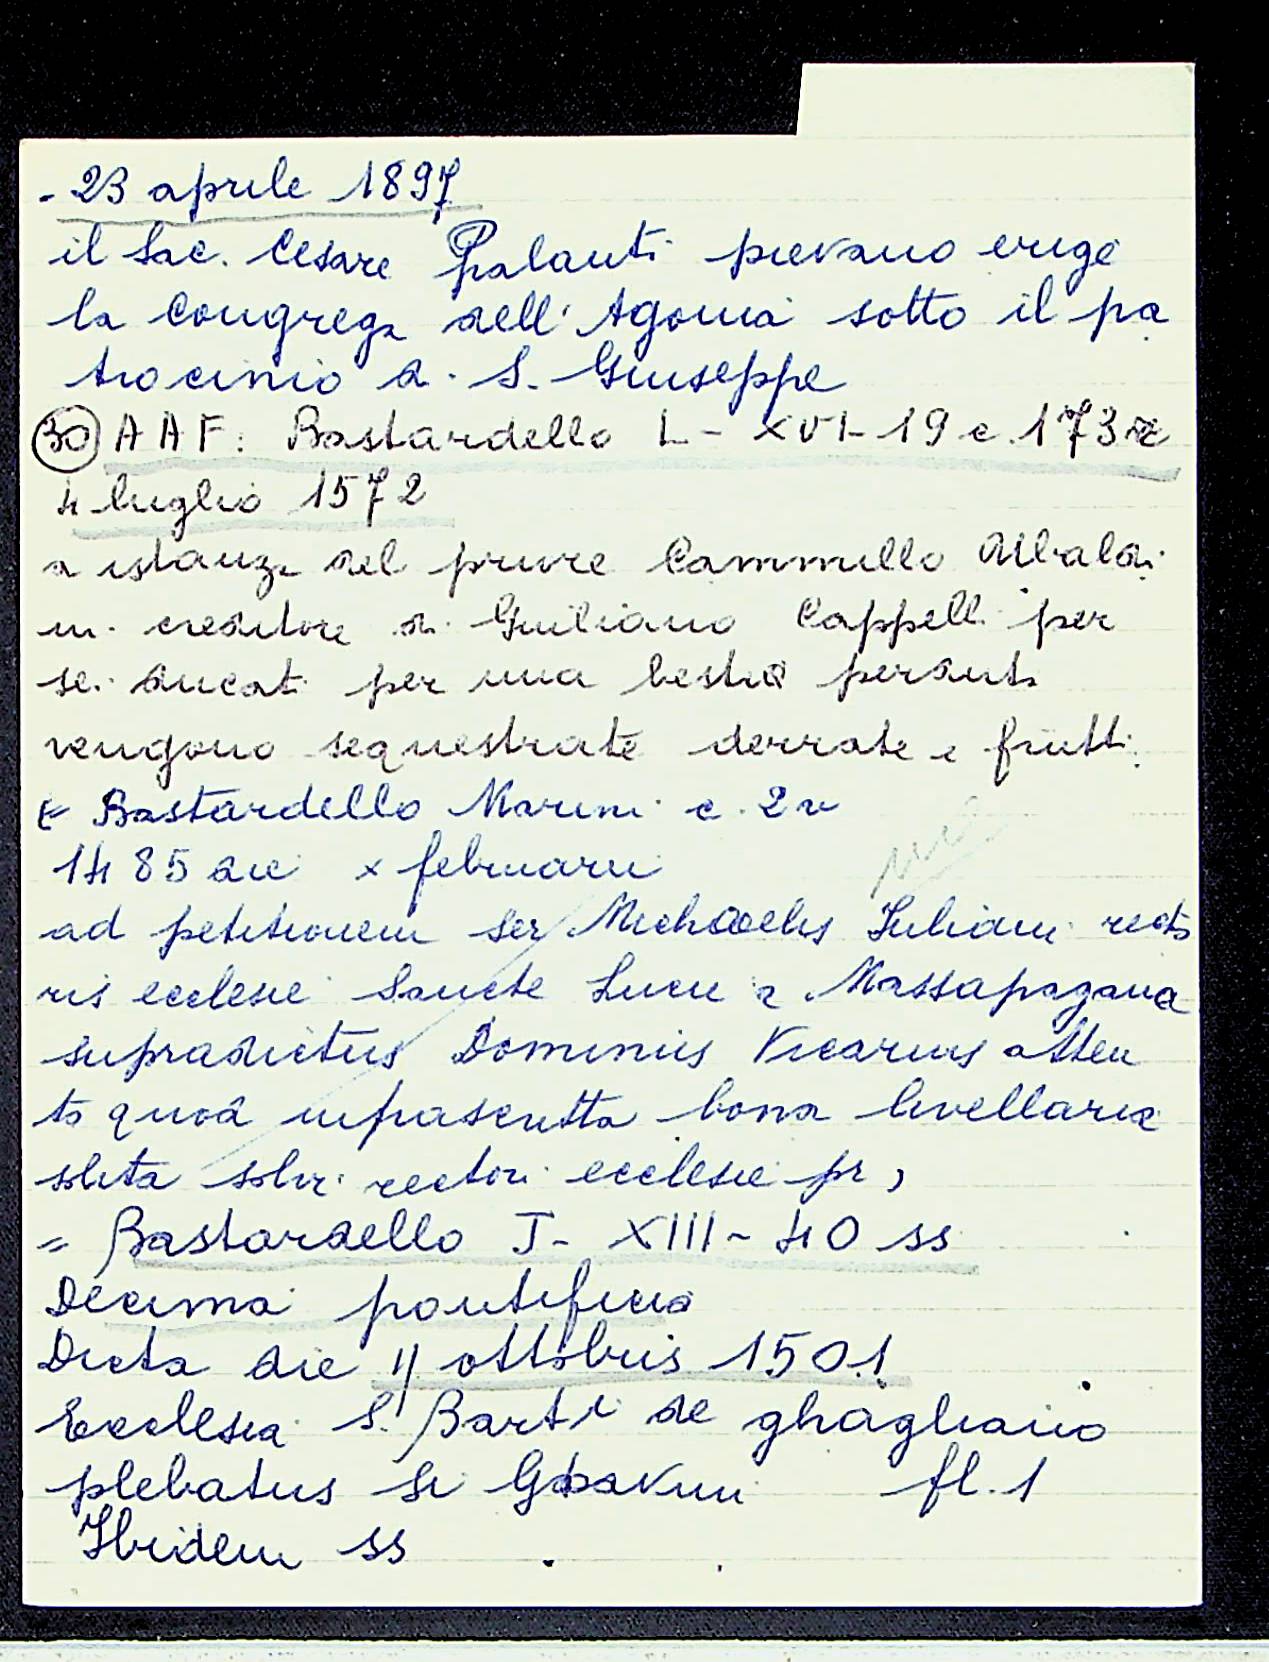 - 23 aprile 1897
il Sac. Cesare Palanti pievano erige
la Congrega dell'Agonia sotto il pa
trocinio d. S. Giuseppe
30 AAF: Bastardello L - XVI - 19 c. 173 r
4 luglio 1572
a istanza del priore Cammillo Ubaldi
ni creditore di Giuliano Cappelli per
sei ducati per una bestia perduta
vengono sequestrate derrate e frutti
Bastardello Marini c. 2 v
1485 die x februarii
ad petitionem ser Michaelis Iuliani recto
ris ecclesie Sancte Lucie a Massapagana
supradictus Dominus Vicarius atten
to quod infrascritta bona livellaria
solita solvi rectori ecclesie pr,
= Bastardello I - XIII - 40 ss
Decima pontificia
Dicta die 11 ottobris 1501
Ecclesia S. Barti de ghagliano
plebatus S. fl. 1
Ibidem ss